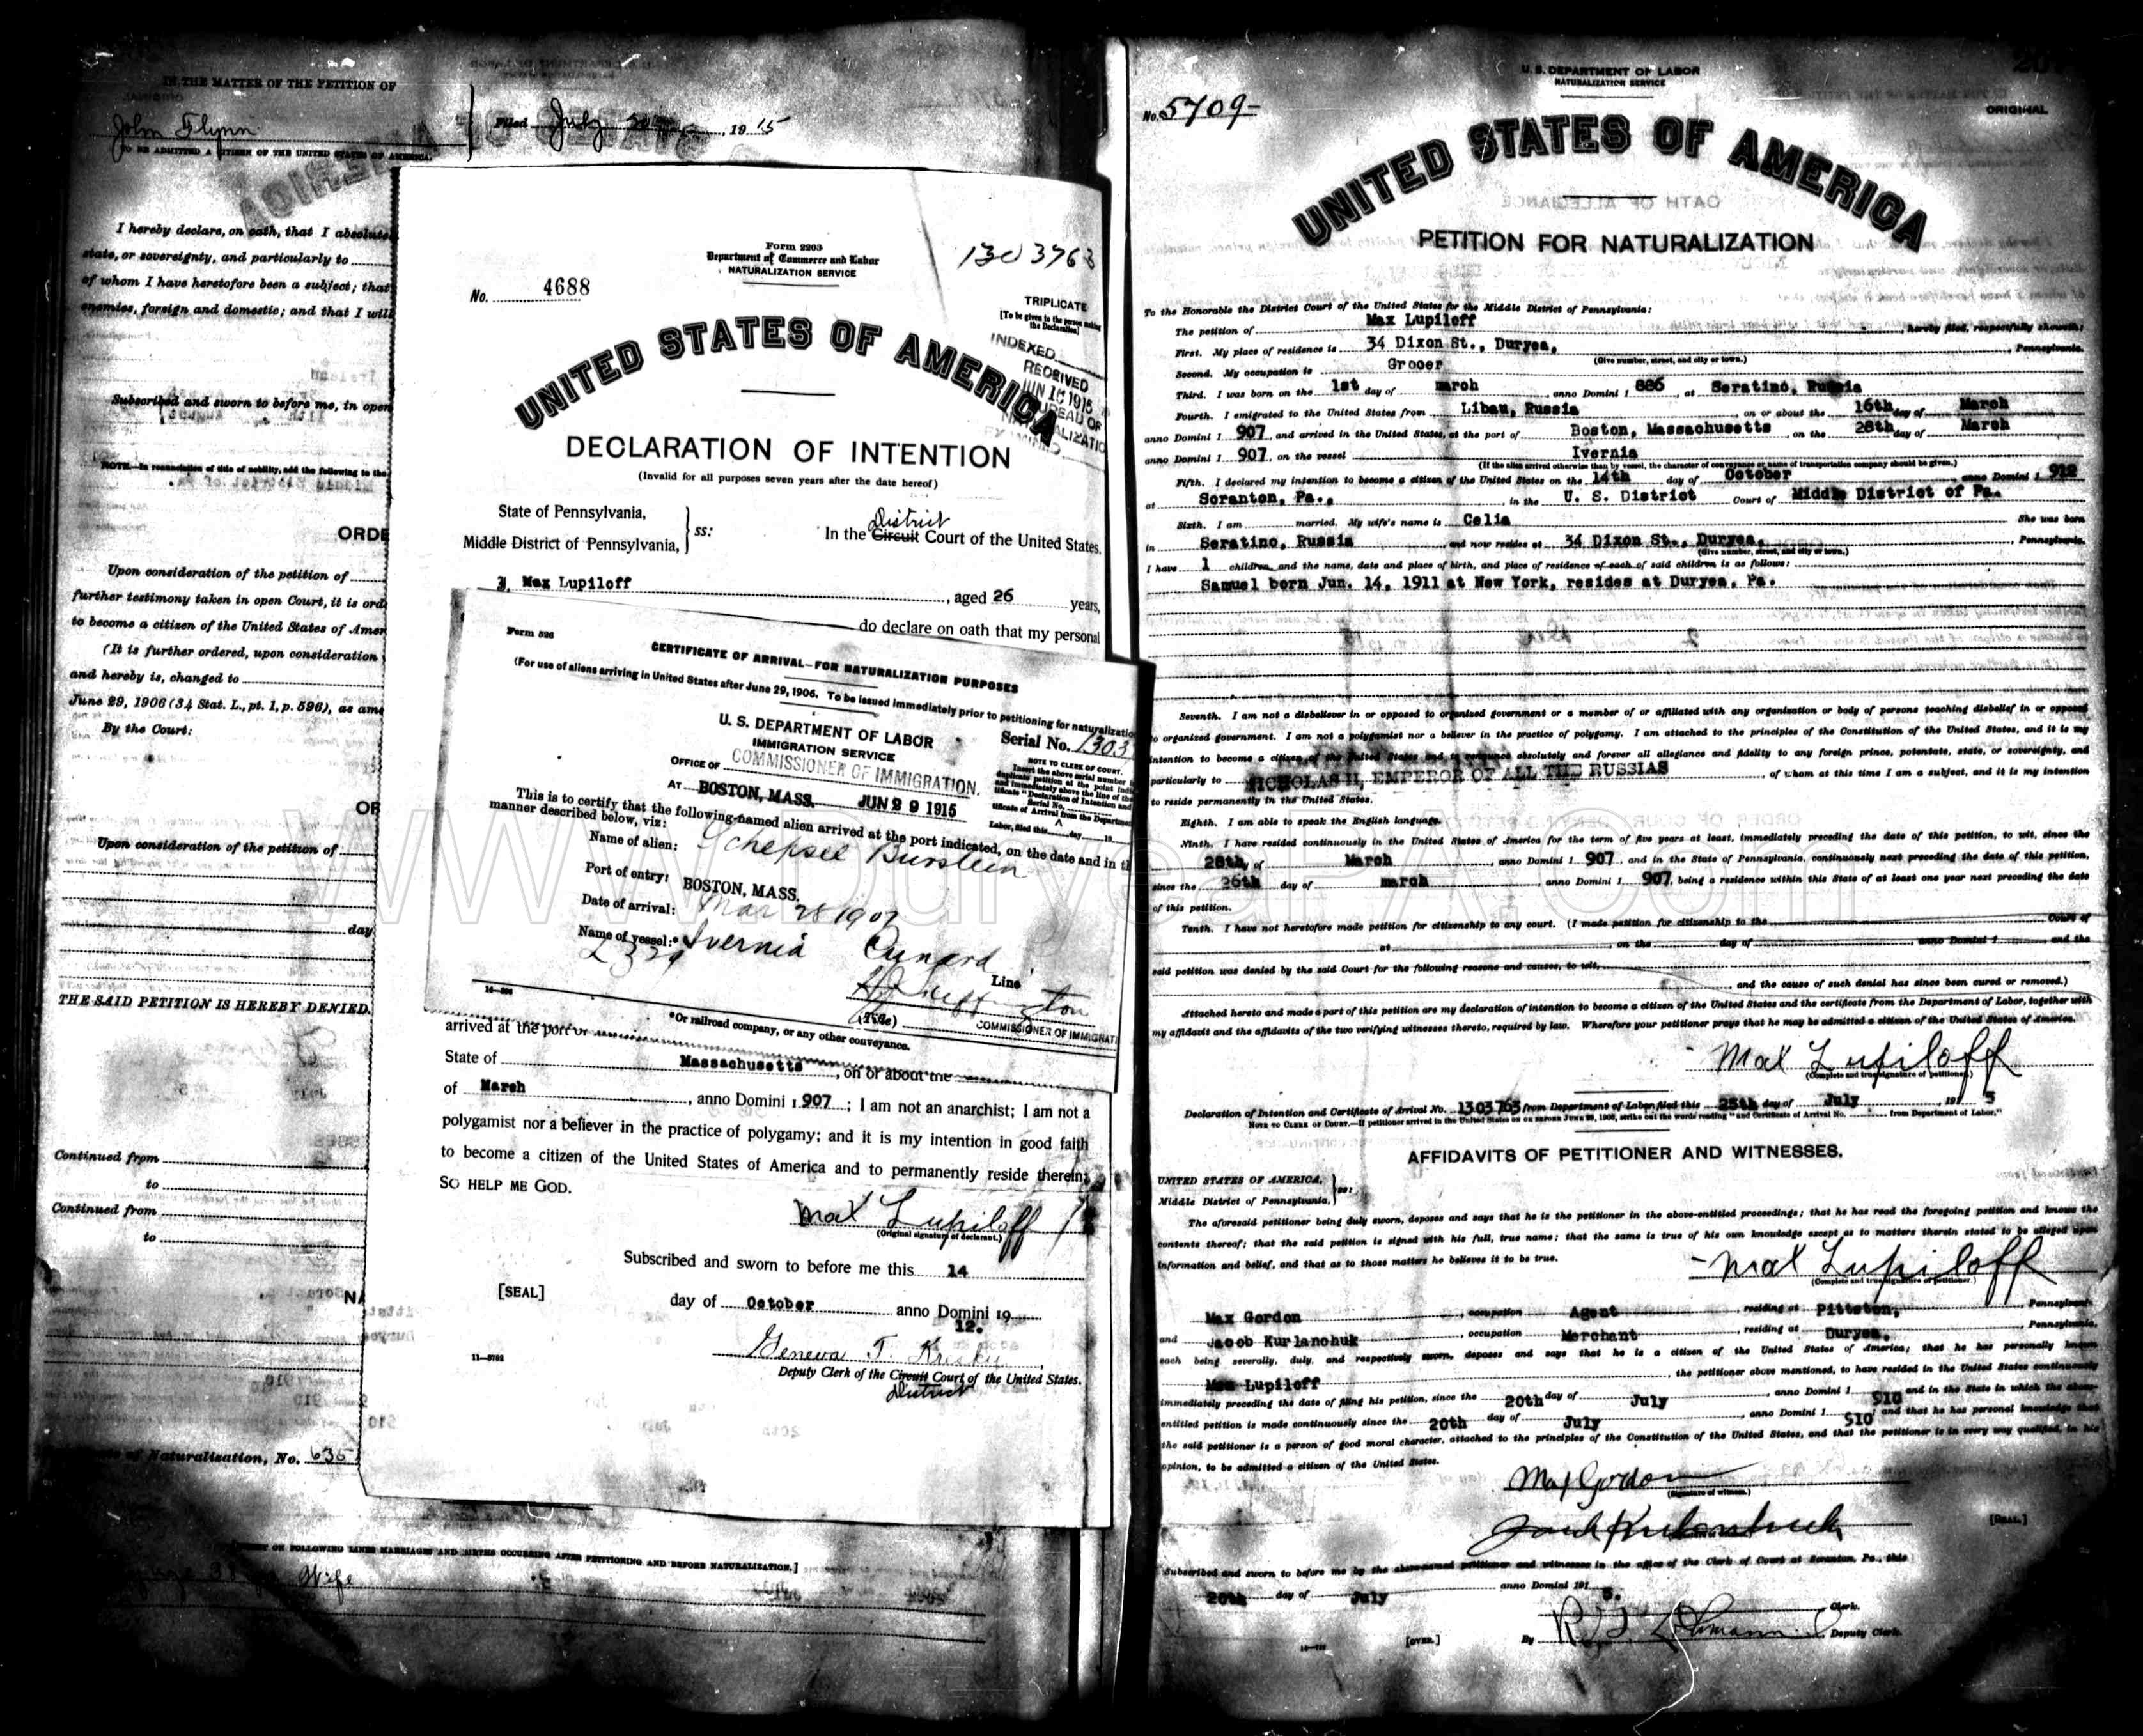 IN THE MATTER OF THE PETITION OF
John Flynn
TO BE ADMITTED A CITIZEN OF THE UNITED STATES OF AMERICA.
Filed July , 1915
I hereby declare, on oath, that I absolute
state, or sovereignty, and particularly to
of whom I have heretofore been a subject; that
enemies, foreign and domestic; and that I will
Subscribed and sworn to before me, in open
NOTE.—In renunciation of title of nobility, add the following to the
ORDE
Upon consideration of the petition of
further testimony taken in open Court, it is ord
to become a citizen of the United States of Amer
(It is further ordered, upon consideration
and hereby is, changed to
June 29, 1906 (34 Stat. L., pt. 1, p. 596), as ame
By the Court:
OR
Upon consideration of the petition of
day
THE SAID PETITION IS HEREBY DENIED.
Continued from
to
Continued from
to
NA
of Naturalization, No. 635
ON FOLLOWING LINES MARRIAGES AND BIRTHS OCCURRING AFTER PETITIONING AND BEFORE NATURALIZATION.]
Wife
Form 2203
Department of Commerce and Labor
NATURALIZATION SERVICE
1303763
No. 4688
TRIPLICATE
[To be given to the person making the Declaration]
INDEXED
RECEIVED
JUN 16 1915
BUREAU OF
NATURALIZATIO
UNITED STATES OF AMERICA
DECLARATION OF INTENTION
(Invalid for all purposes seven years after the date hereof)
State of Pennsylvania,
Middle District of Pennsylvania,
ss:
In the Circuit Court of the United States.
District
I, Max Lupiloff, aged 26 years,
do declare on oath that my personal
Form 526
CERTIFICATE OF ARRIVAL—FOR NATURALIZATION PURPOSES
(For use of aliens arriving in United States after June 29, 1906. To be issued immediately prior to petitioning for naturalizatio
U. S. DEPARTMENT OF LABOR
IMMIGRATION SERVICE
Serial No. 1303
NOTE TO CLERK OF COURT.
OFFICE OF COMMISSIONER OF IMMIGRATION.
AT BOSTON, MASS. JUN 29 1915
This is to certify that the following-named alien arrived at the port indicated, on the date and in th
manner described below, viz:
Name of alien: Schepsel Burstein
Port of entry: BOSTON, MASS.
Date of arrival: Mar 28 1907
Name of vessel:* Ivernia Cunard Line
(Title) COMMISSIONER OF IMMIGRATI
*Or railroad company, or any other conveyance.
arrived at the port of
State of Massachusetts, on or about the
of March, anno Domini 1907; I am not an anarchist; I am not a
polygamist nor a believer in the practice of polygamy; and it is my intention in good faith
to become a citizen of the United States of America and to permanently reside therein:
SO HELP ME GOD.
Max Lupiloff
(Original signature of declarant.)
Subscribed and sworn to before me this 14
[SEAL]
day of October anno Domini 19
12.
Geneva T.
Deputy Clerk of the Circuit Court of the United States.
District
11—3782
U. S. DEPARTMENT OF LABOR
NATURALIZATION SERVICE
No. 5709
ORIGINAL
UNITED STATES OF AMERICA
PETITION FOR NATURALIZATION
To the Honorable the District Court of the United States for the Middle District of Pennsylvania:
The petition of Max Lupiloff, hereby filed, respectfully showeth:
First. My place of residence is 34 Dixon St., Duryea, Pennsylvania.
(Give number, street, and city or town.)
Second. My occupation is Grocer
Third. I was born on the 1st day of march, anno Domini 1 886, at Seratino, Russia
Fourth. I emigrated to the United States from Libau, Russia, on or about the 16th day of March
anno Domini 1 907, and arrived in the United States, at the port of Boston, Massachusetts, on the 28th day of March
anno Domini 1 907, on the vessel Ivernia
(If the alien arrived otherwise than by vessel, the character of conveyance or name of transportation company should be given.)
Fifth. I declared my intention to become a citizen of the United States on the 14th day of October anno Domini 1 912
at Scranton, Pa., in the U. S. District Court of Middle District of Pa.
Sixth. I am married. My wife's name is Celia She was born
in Seratino, Russia and now resides at 34 Dixon St., Duryea, Pennsylvania.
(Give number, street, and city or town.)
I have 1 children, and the name, date and place of birth, and place of residence of each of said children is as follows:
Samuel born Jun. 14, 1911 at New York, resides at Duryea, Pa.
Seventh. I am not a disbeliever in or opposed to organized government or a member of or affiliated with any organization or body of persons teaching disbelief in or opposed
to organized government. I am not a polygamist nor a believer in the practice of polygamy. I am attached to the principles of the Constitution of the United States, and it is my
intention to become a citizen of the United States and to renounce absolutely and forever all allegiance and fidelity to any foreign prince, potentate, state, or sovereignty, and
particularly to NICHOLAS II, EMPEROR OF ALL THE RUSSIAS, of whom at this time I am a subject, and it is my intention
to reside permanently in the United States.
Eighth. I am able to speak the English language.
Ninth. I have resided continuously in the United States of America for the term of five years at least, immediately preceding the date of this petition, to wit, since the
28th of March, anno Domini 1 907, and in the State of Pennsylvania, continuously next preceding the date of this petition,
since the day of march, anno Domini 1 907, being a residence within this State of at least one year next preceding the date
of this petition.
Tenth. I have not heretofore made petition for citizenship to any court. (I made petition for citizenship to the Court of
at on the day of anno Domini 1 and the
said petition was denied by the said Court for the following reasons and causes, to wit,
, and the cause of such denial has since been cured or removed.)
Attached hereto and made a part of this petition are my declaration of intention to become a citizen of the United States and the certificate from the Department of Labor, together with
my affidavit and the affidavits of the two verifying witnesses thereto, required by law. Wherefore your petitioner prays that he may be admitted a citizen of the United States of America.
Max Lupiloff
(Complete and true signature of petitioner.)
Declaration of Intention and Certificate of Arrival No. 1303763 from Department of Labor filed this day of July, 191 5
NOTE TO CLERK OF COURT.—If petitioner arrived in the United States on or before June 29, 1906, strike out the words reading "and Certificate of Arrival No. from Department of Labor."
AFFIDAVITS OF PETITIONER AND WITNESSES.
UNITED STATES OF AMERICA,
Middle District of Pennsylvania,
ss:
The aforesaid petitioner being duly sworn, deposes and says that he is the petitioner in the above-entitled proceedings; that he has read the foregoing petition and knows the
contents thereof; that the said petition is signed with his full, true name; that the same is true of his own knowledge except as to matters therein stated to be alleged upon
information and belief, and that as to those matters he believes it to be true.
Max Lupiloff
(Complete and true signature of petitioner.)
Max Gordon, occupation Agent, residing at Pittston, Pennsylvania,
and Jacob Kurlanchuk, occupation Merchant, residing at Duryea, Pennsylvania,
each being severally, duly, and respectively sworn, deposes and says that he is a citizen of the United States of America; that he has personally known
Max Lupiloff, the petitioner above mentioned, to have resided in the United States continuously
immediately preceding the date of filing his petition, since the 20th day of July, anno Domini 1 910 and in the State in which the above-
entitled petition is made continuously since the 20th day of July, anno Domini 1 910 and that he has personal knowledge that
the said petitioner is a person of good moral character, attached to the principles of the Constitution of the United States, and that the petitioner is in every way qualified, in his
opinion, to be admitted a citizen of the United States.
Max Gordon
(Signature of witness.)
Jacob Kurlanchuk
[SEAL.]
Subscribed and sworn to before me by the above-named petitioner and witnesses in the office of the Clerk of Court at Scranton, Pa., this
day of July anno Domini 191 5.
Clerk.
[OVER.]
By Deputy Clerk.
www.DuryeaPA.com